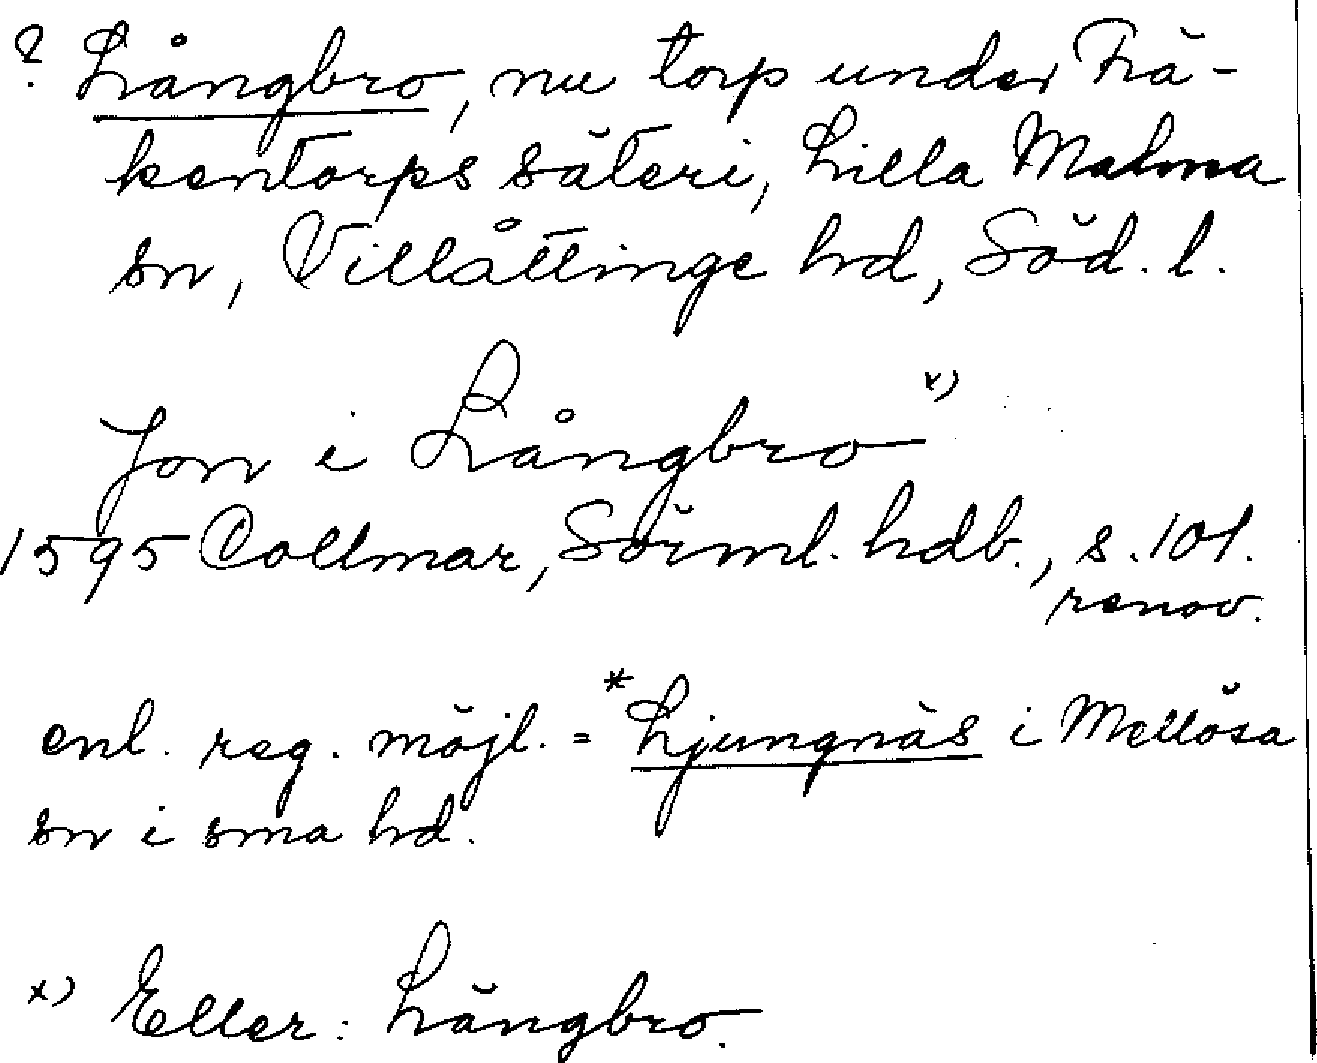 ? Långbro, nu torp under Frä-
kentorps säteri, Lilla Malma
sn, Villåttinge hd, Söd. l.
Jon i Långbro x)
1595 Collmar, Sörml. hdb., s. 101.
renov.
enl. reg. möjl. = *Ljungnäs i Mellösa
sn i sma hd.
x) Eller: Längbro.